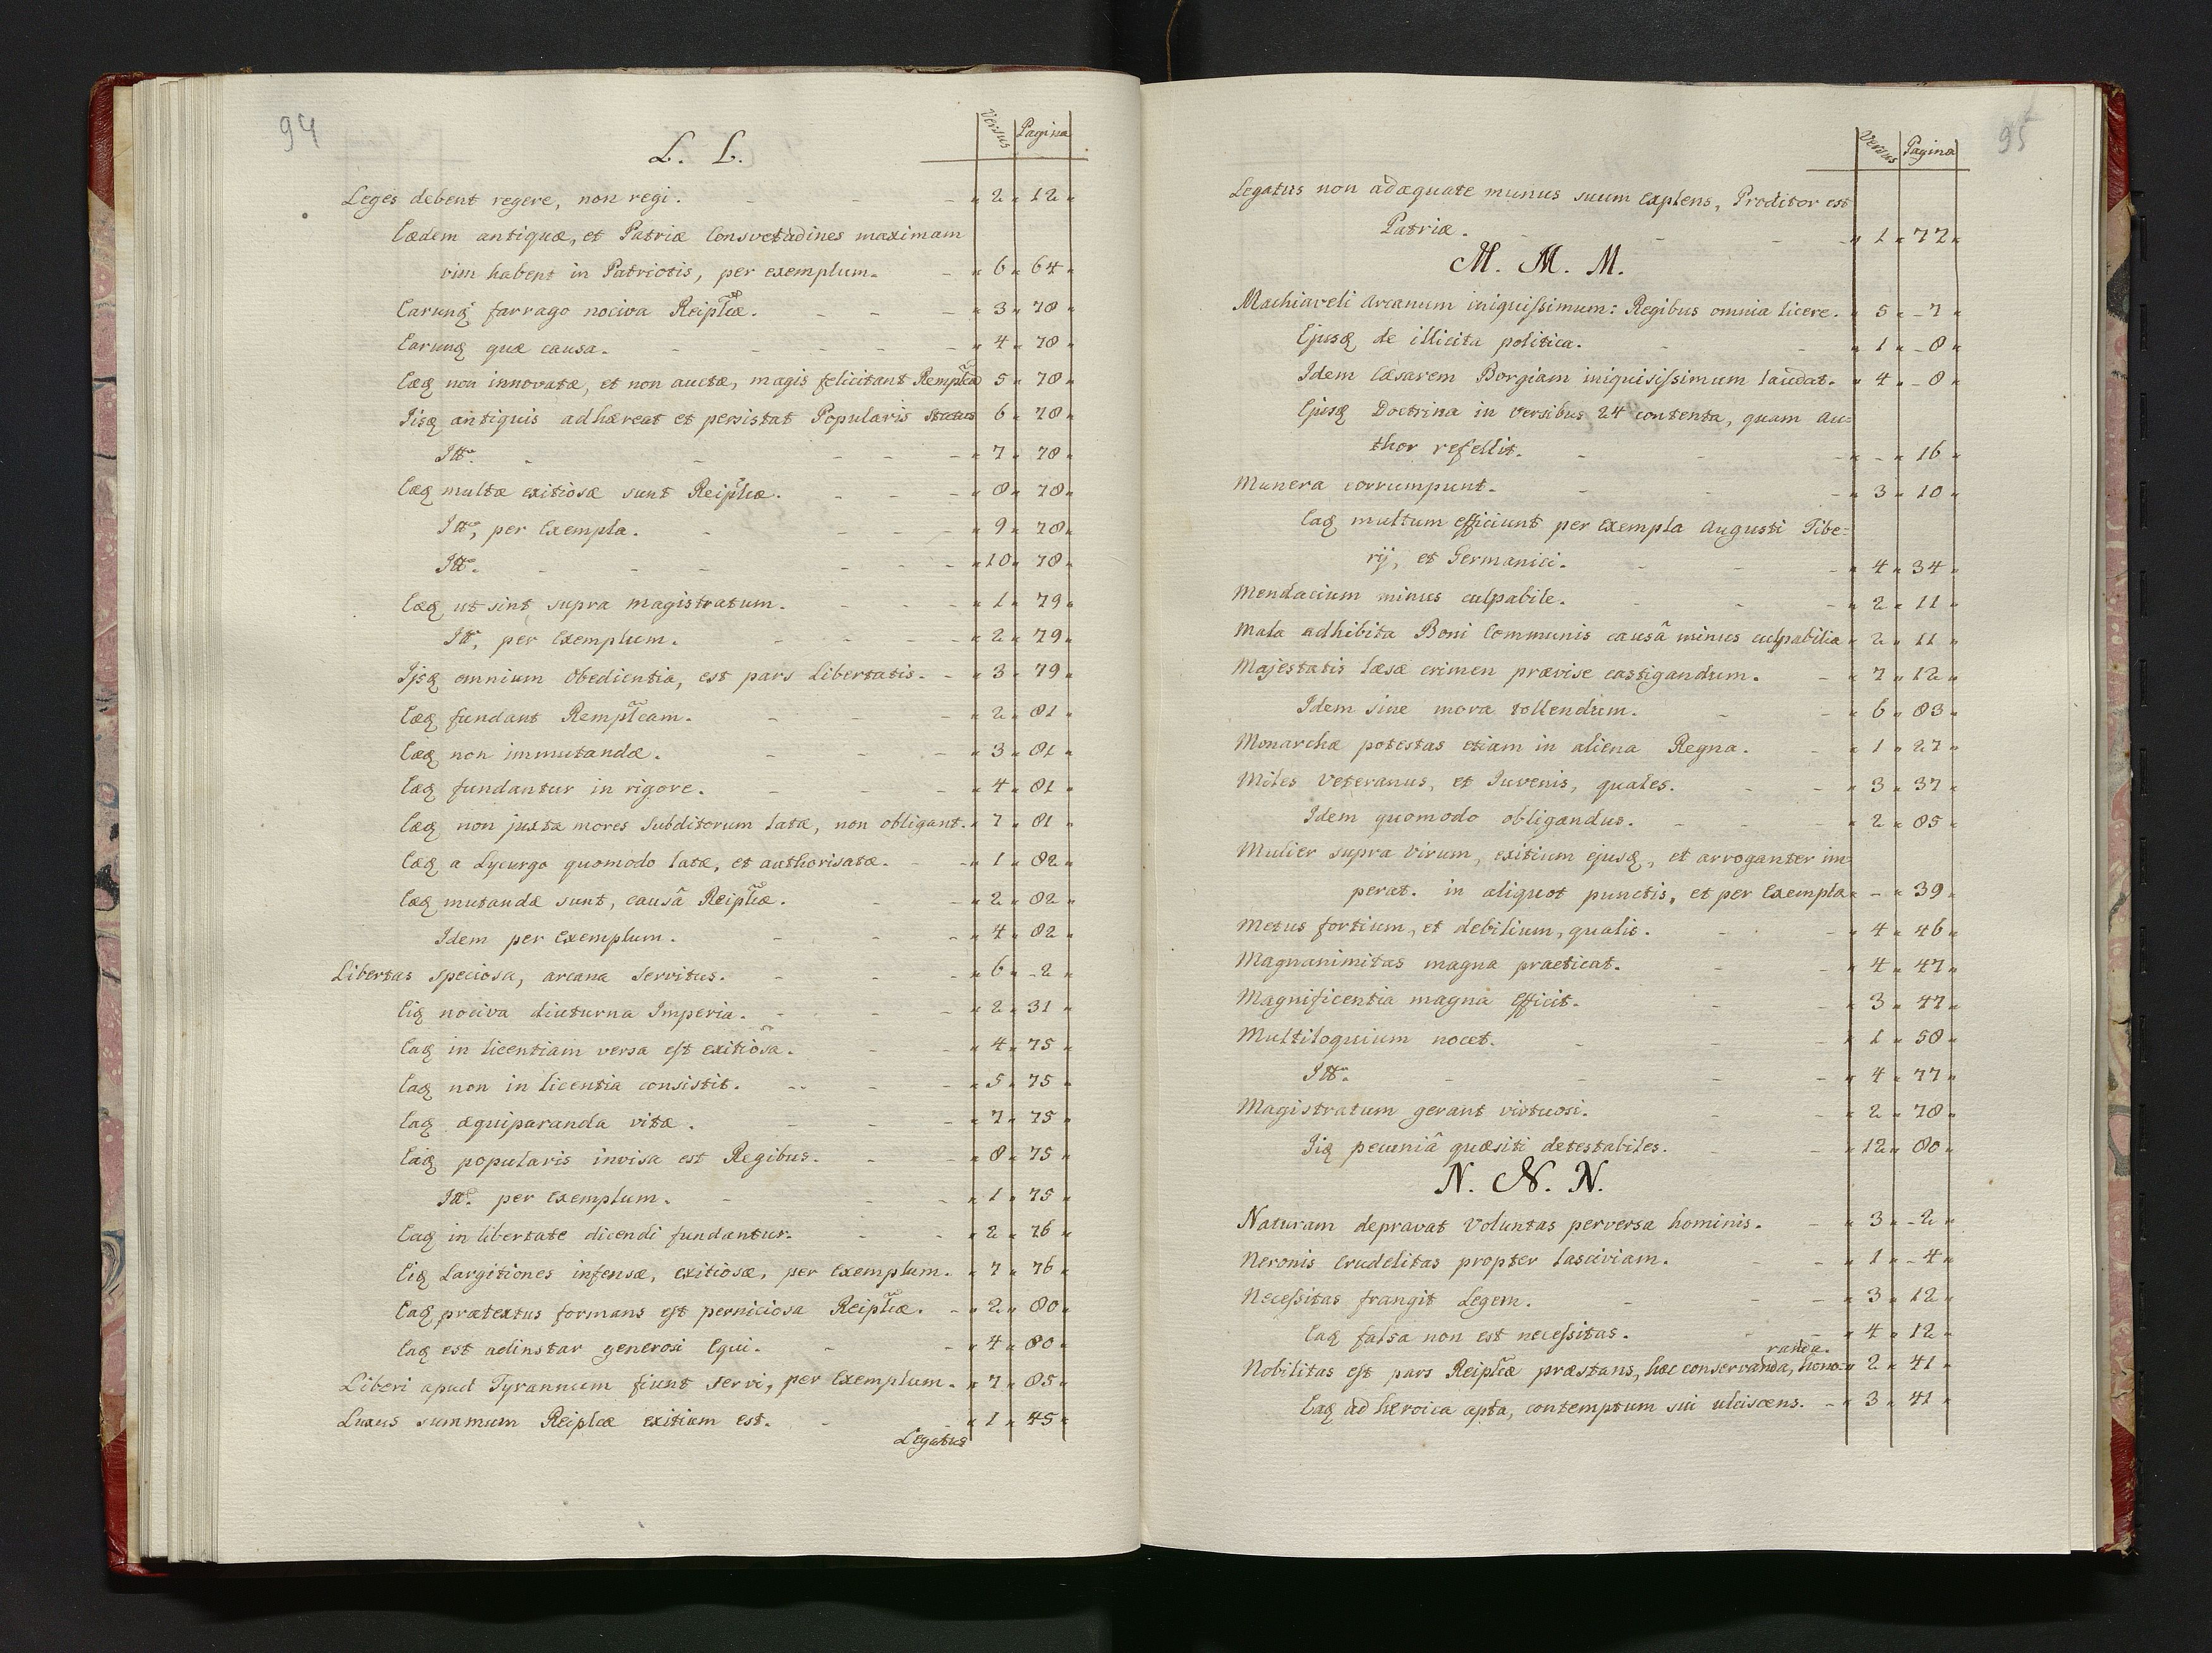 94
L. L.
Versus Pagina
Leges debent regere, non regi. - - - " 2 " 12 "
Eædem antiquæ, et Patriæ Consvetudines maximam
vim habent in Patriotis, per exemplum. - " 6 " 64 "
Earunq farrago nociva Reiplcæ. - - - " 3 " 78 "
Earunq quæ causa. - - - - - " 4 " 78 "
Eæq non innovatæ, et non auctæ, magis felicitant Remplca 5 " 78 "
Iisq antiquis adhæreat et persistat Popularis status 6 " 78 "
Itto. - - - - - " 7 " 78 "
Eæq multæ exitiosæ sunt Reiplcæ. - - - " 8 " 78 "
Itto, per Exempla. - - - - " 9 " 78 "
Itto. - - - - - - " 10 " 78 "
Eæq ut sint supra magistratum. - - - " 1 " 79 "
Itto, per Exemplum. - - - - " 2 " 79 "
Ijsq omnium Obedientia, est pars Libertatis. - - " 3 " 79 "
Eæq fundant Remplcam. - - - " 2 " 81 "
Eæq non immutandæ. - - - " 3 " 81 "
Eæq fundantur in rigore. - - - " 4 " 81 "
Eæq non juxta mores Subditorum latæ, non obligant. " 7 " 81 "
Eæq a Lycurgo quomodo latæ, et authorisatæ. - - " 1 " 82 "
Eæq mutandæ sunt, causâ Reiplcæ. - - " 2 " 82 "
Idem per Exemplum. - - - " 4 " 82 "
Libertas speciosa, arcana Servitus. - - - " 6 " - 2 "
Eiq nociva diuturna Imperia. - - - " 2 " 31 "
Eaq in licentiam versa est exitiosa. - - " 4 " 75 "
Eaq non in licentia consistit. - - - - " 5 " 75 "
Eaq æquiparanda vitæ. - - - " 7 " 75 "
Eaq popularis invisa est Regibus. - - " 8 " 75 "
Itto. per Exemplum. - - - " 1 " 75 "
Eaq in libertate dicendi fundantur. - - " 2 " 76 "
Eiq Largitiones infensæ, exitiosæ, per Exemplum. " 7 " 76 "
Eaq prætextus formans est perniciosa Reiplcæ. - " 2 " 80 "
Eaq est adinstar generosi Equi. - - " 4 " 80 "
Liberi apud Tyrannum fiunt servi, per Exemplum. " 7 " 85 "
Luxus summum Reiplcæ exitium est. - - " 1 " 45 "
Legatus
95
Versus Pagina
Legatus non adæquate munus suum explens, Proditor est
Patriæ. - - - " 1 " 72 "
M. M. M.
Machiaveli Arcanum iniquissimum: Regibus omnia licere. " 5 " - 7 "
Ejusq de illicita politica. - - " 1 " - 8 "
Idem Cæsarem Borgiam iniquisissimum laudat. " 4 " - 8 "
Ejusq Doctrina in versibus 24 contenta, quam Au=
thor refellit. - - - " - " 16 "
Munera corrumpunt. - - - " 3 " 10 "
Eaq multum efficiunt per Exempla Augusti Tibe=
rij, et Germanici. - - - " 4 " 34 "
Mendacium minus culpabile. - - - " 2 " 11 "
Mala adhibita Boni Communis causâ minus culpabilia " 2 " 11 "
Majestatis læsæ crimen prævise castigandum. - " 7 " 12 "
Idem sine mora tollendum. - - " 6 " 83 "
Monarchæ potestas etiam in aliena Regna. - " 1 " 27 "
Miles Veteranus, et Iuvenis, quales. - - " 3 " 37 "
Idem quomodo obligandus. - - - " 2 " 85 "
Mulier supra Virum, exitium ejusq, et arroganter im=
perat. in aliquot punctis, et per Exempla " - " 39 "
Metus fortium, et debilium, qualis. - - " 4 " 46 "
Magnanimitas magna practicat. - - " 4 " 47 "
Magnificentia magna Efficit. - - " 3 " 47 "
Multiloquium nocet. - - " 1 " 50 "
Itto. - - - - " 4 " 77 "
Magistratum gerant virtuosi. - - " 2 " 78 "
Iiq pecuniâ quæsiti detestabiles. - - " 12 " 80 "
N. N. N.
Naturam depravat Voluntas perversa hominis. - " 3 " - 2 "
Neronis Crudelitas propter lasciviam. - - " 1 " - 4 "
Necessitas frangit Legem. - - - " 3 " 12 "
Eaq falsa non est necessitas. - - " 4 " 12 "
randa.
Nobilitas est pars Reiplcæ præstans, hæc conservanda, hono= " 2 " 41 "
Eaq ad heroica apta, contemptum sui ulciscens. - " 3 " 41 "